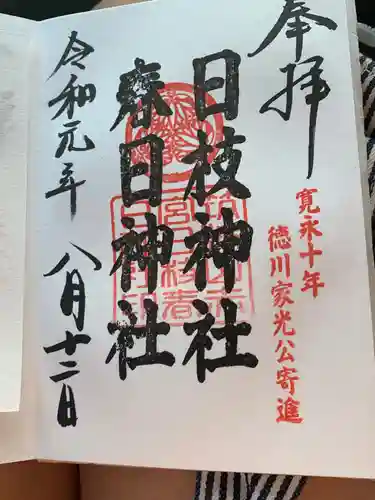 奉拝
寛永十年
徳川家光公寄進
日枝神社
春日神社
令和元年
八月十二日